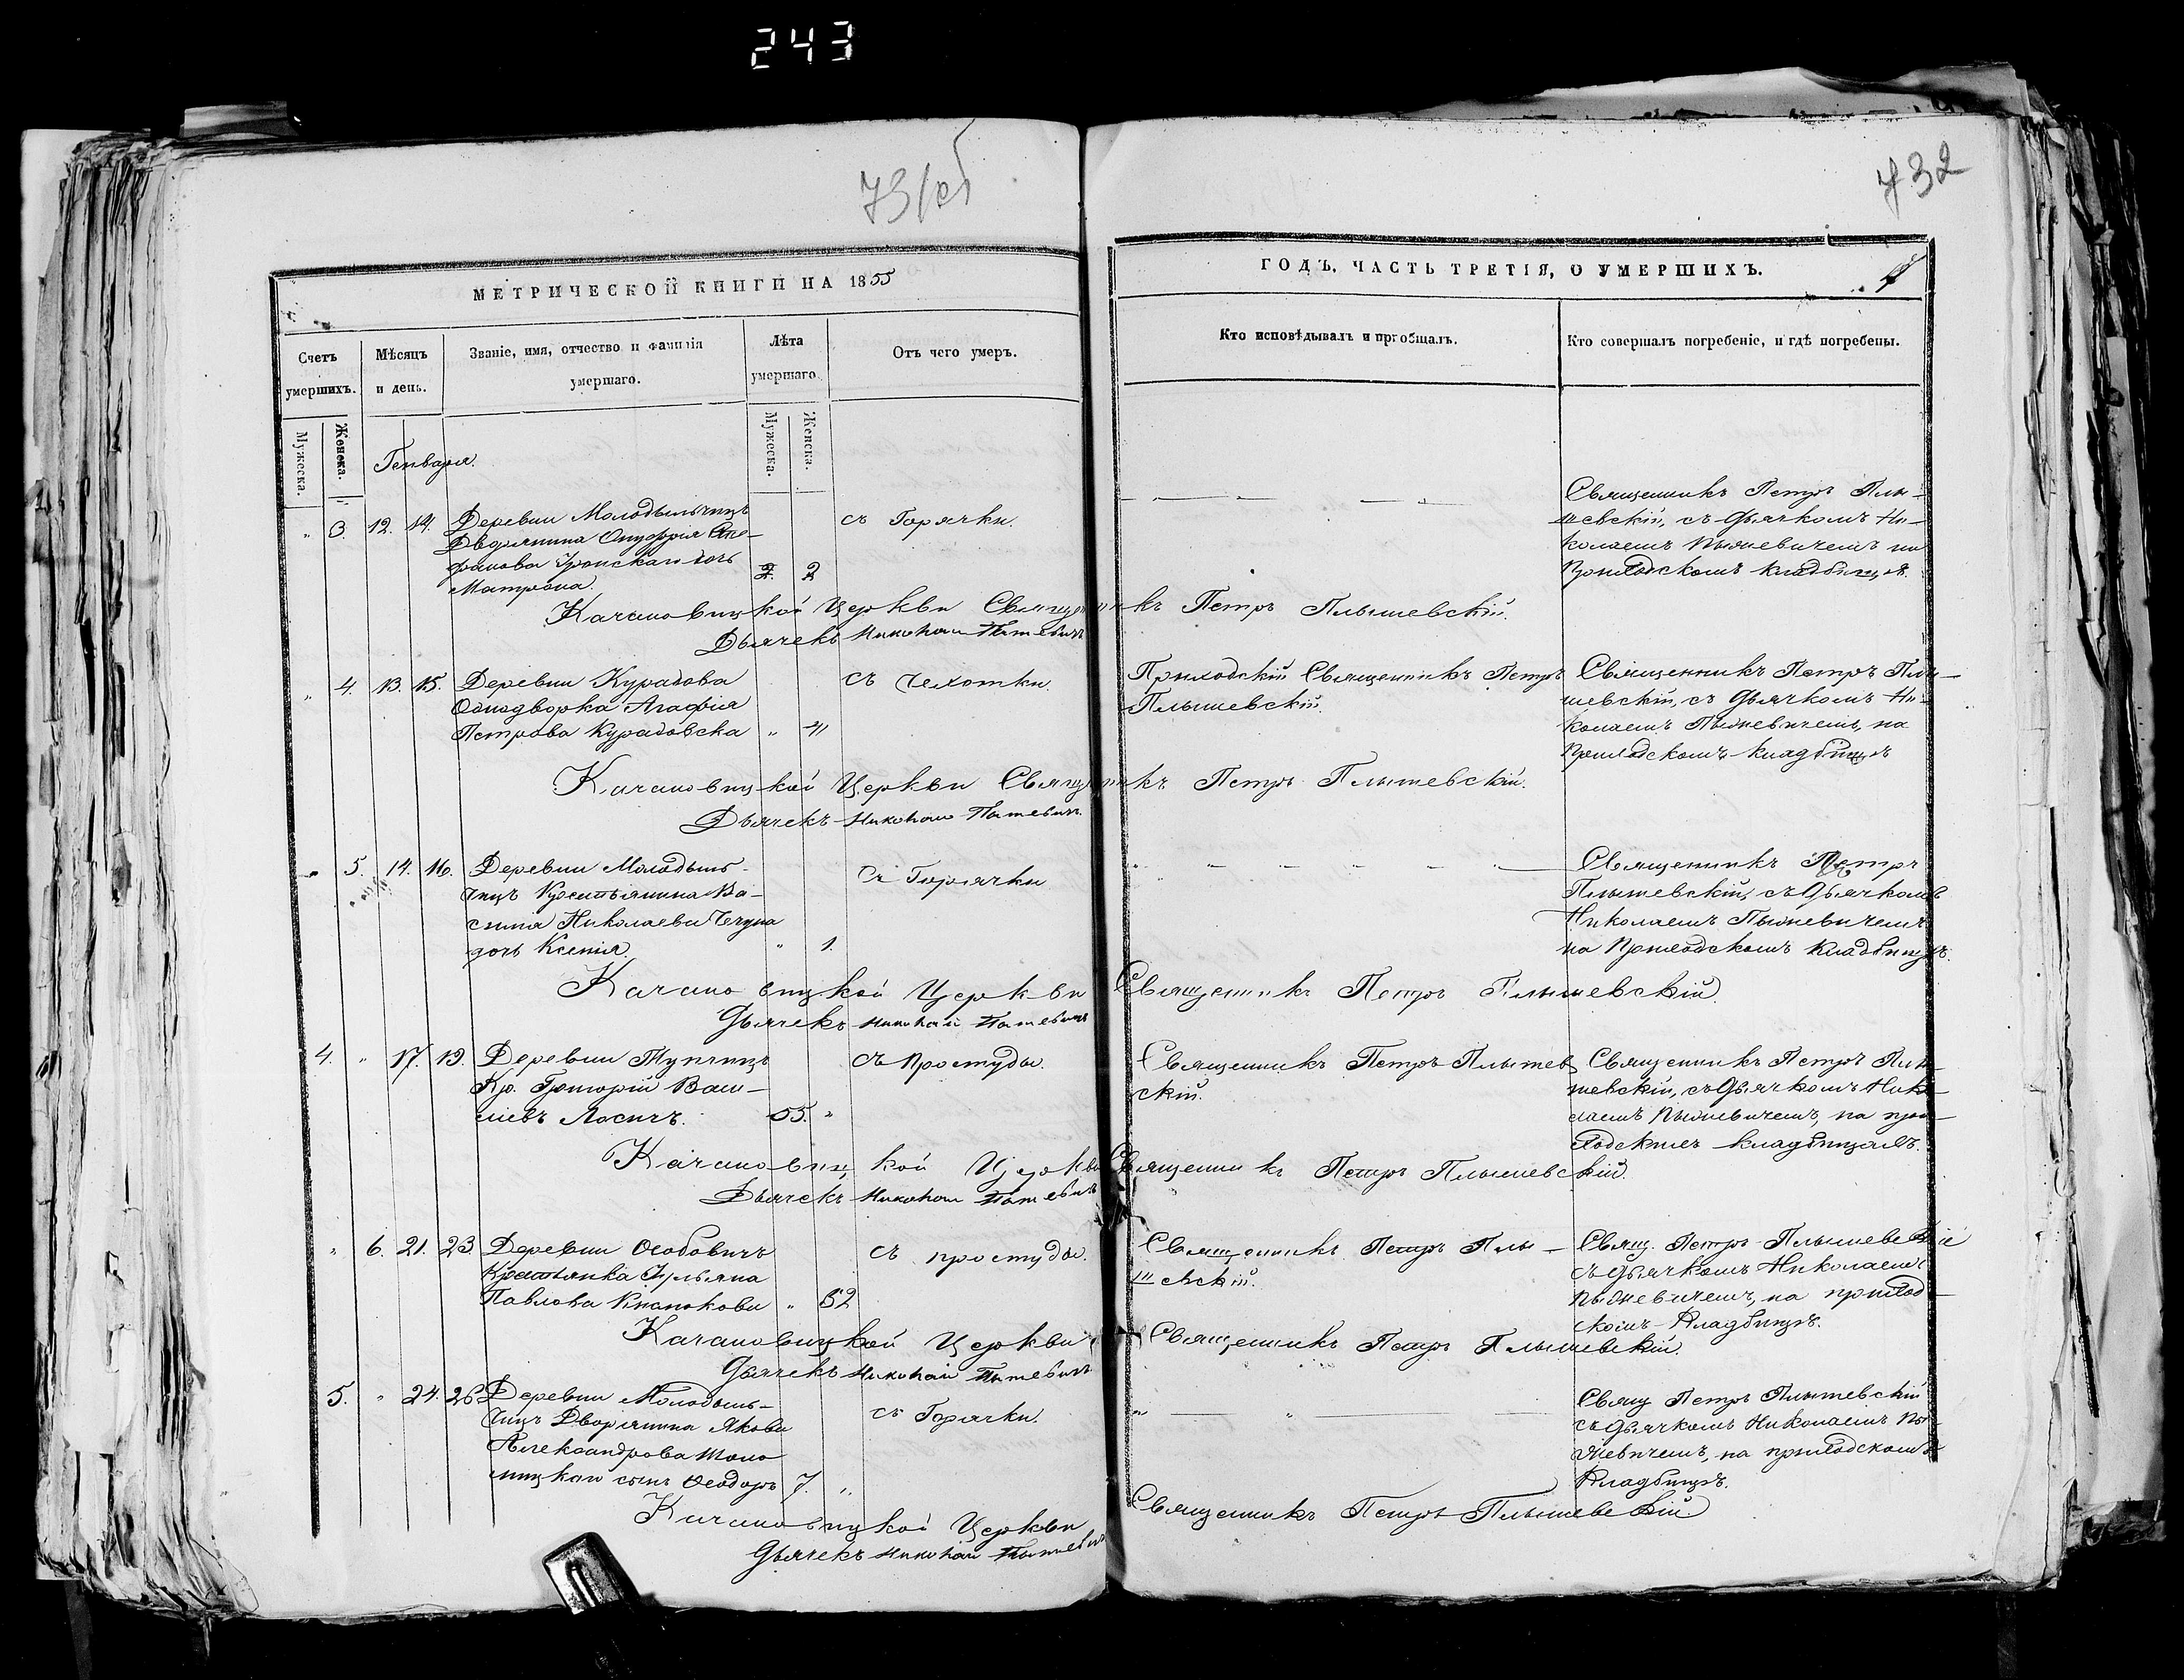 243
73об
432
МЕТРИЧЕСКОЙ КНИГИ НА 1855
ГОДЪ, ЧАСТЬ ТРЕТІЯ, О УМЕРШИХЪ.
4
Счетъ умершихъ.
Мѣсяцъ и день.
Званіе, имя, отчество и фамилія умершаго.
Лѣта умершаго
Отъ чего умеръ.
Кто исповѣдывалъ и пріобщалъ.
Кто совершалъ погребеніе, и гдѣ погребены.
Мужеска.
Женска.
Мужеска.
Женска.
Генваря.
" 3. 12. 14. Деревни Молодыльчицъ
Дворянина Онуфрія Сте-
фанова дочь
Матрона. 2
съ Горячки.
Священникъ Петръ Плы-
шевскій, съ дьячкомъ Ни-
колаемъ на
Приходскомъ кладбищѣ.
Качановицкой Церкви Священникъ Петръ Плышевскій.
Дьячекъ Николай
" 4. 13. 15. Деревни Курадова
Однодворка Агафія
Петрова Курадовска "
съ Чехотки.
Приходскій Священникъ Петръ
Плышевскій.
Священникъ Петръ Плы-
шевскій, съ дьячкомъ Ни-
колаемъ на
Приходскомъ кладбищѣ
Качановицкой Церкви Священникъ Петръ Плышевскій.
Дьячекъ Николай
" 5. 14. 16. Деревни Молодыль-
чицъ Крестьянина Ва-
силія Николаева
дочь Ксенія. " 1.
съ Горячки
Священникъ Петръ
Плышевскій, съ дьячкомъ
Николаемъ
на Приходскомъ кладбищѣ.
Качановицкой Церкви Священникъ Петръ Плышевскій.
Дьячекъ Николай
4. " 17. 19. Деревни Тупчицъ
Кр. Григорій Васи-
ліевъ Лосичъ. 55. "
съ простуды.
Священникъ Петръ Плышев
скій.
Священникъ Петръ Плы-
шевскій, съ дьячкомъ Нико-
лаемъ на при-
ходскихъ кладбищахъ.
Качановицкой Церкви Священникъ Петръ Плышевскій.
Дьячекъ Николай
" 6. 21. 23. Деревни Особовичъ
Крестьянка Ульяна
Павлова " 52
съ простуды.
Священникъ Петръ Плы-
шевскій.
Свящ. Петръ Плышевскій
съ дьячкомъ Николаемъ
на приход-
скомъ Кладбищѣ.
Качановицкой Церкви Священникъ Петръ Плышевскій.
Дьячекъ Николай
5. " 24. 26 Деревни Молодыль-
чицъ Дворянина Якова
Александрова
сынъ Ѳеодоръ 7. "
съ Горячки.
Свящ Петръ Плышевскій
съ дьячкомъ Николаемъ
на приходскомъ
Кладбищѣ.
Качановицкой Церкви Священникъ Петръ Плышевскій
Дьячекъ Николай